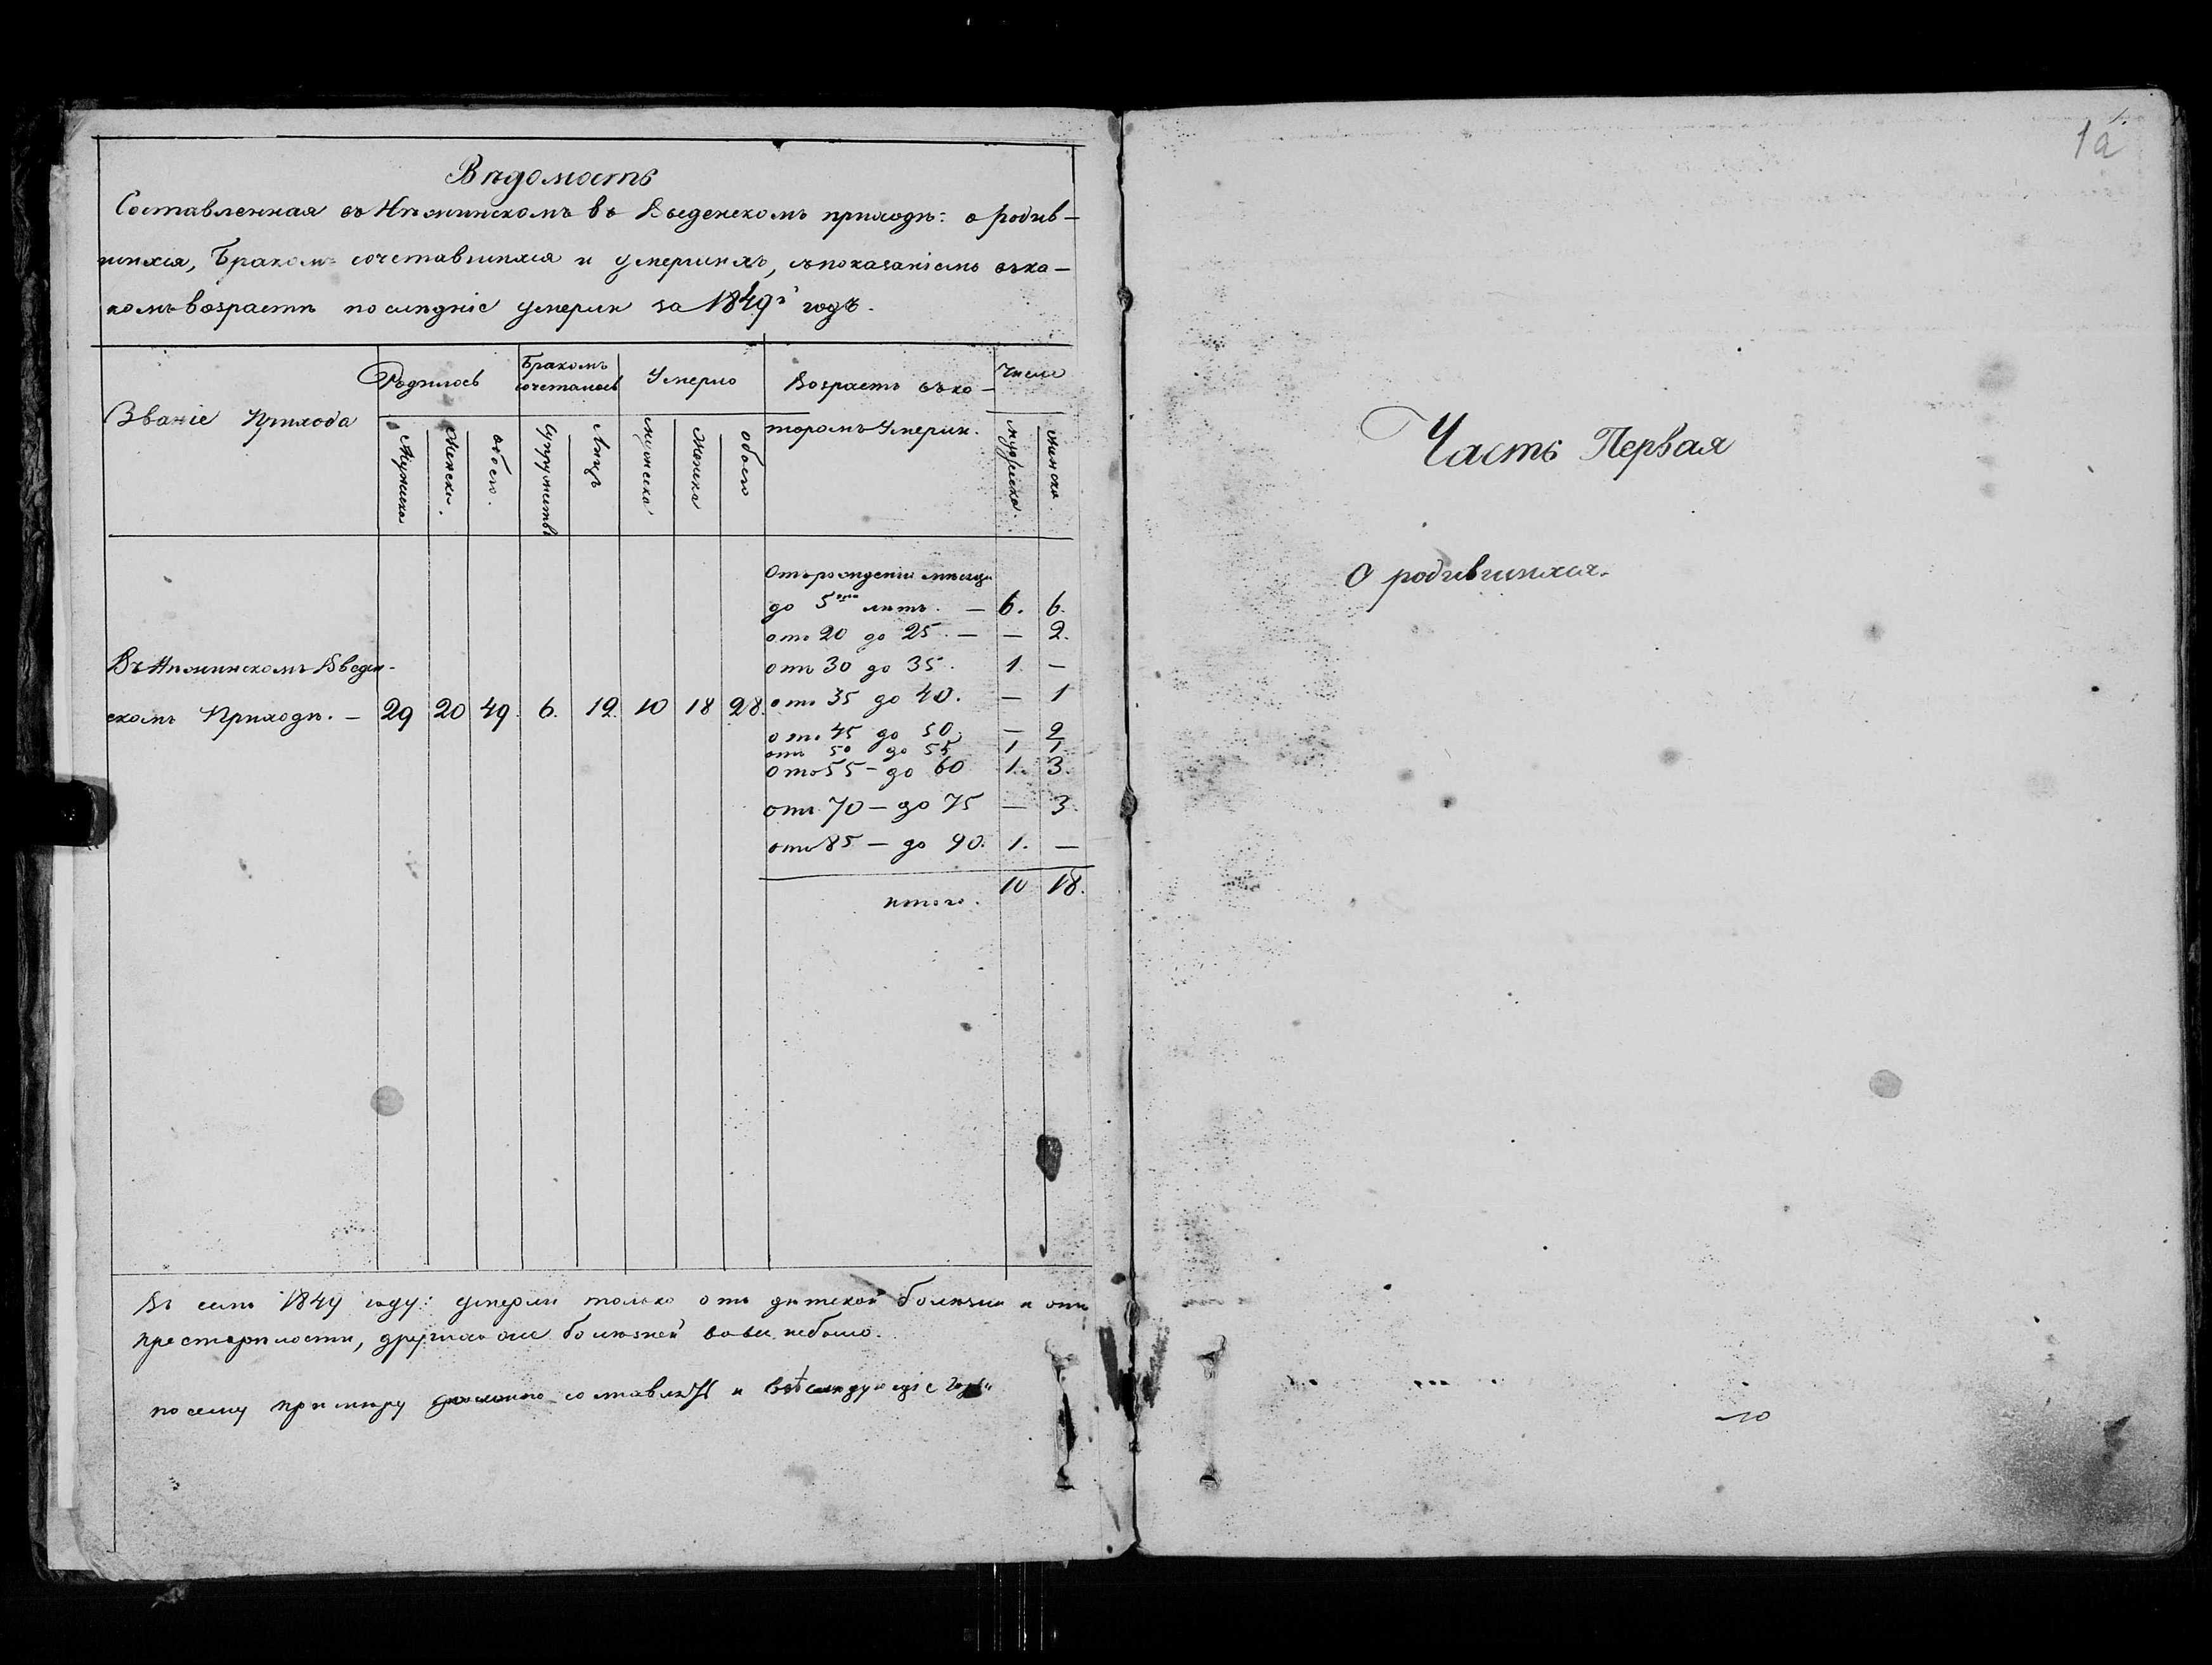 Вѣдомость
Составленная въ Нѣжинскомъ въ Введенскомъ приходѣ: о родив-
шихся, Бракомъ сочетавшихся и умершихъ, съ показаніемъ въ ка-
комъ возрастѣ послѣдніе умерли за 1849й годъ.
Званіе Прихода
Родилось
Бракомъ сочеталось
Умерло
Возрастъ въ ко-
торомъ Умерли.
Число
Мужеска
Женска.
обоего.
Супружествъ
Лицъ
мужеска
женска
обоего
мужеска.
женска.
Отъ рожденія
до 5ти лѣтъ. — 6. 6.
отъ 20 до 25. — — 2.
отъ 30 до 35. 1. —
отъ 35 до 40. — 1
отъ 45 до 50. — 2
отъ 50 до 55 1 1
отъ 55 — до 60 1. 3.
отъ 70 — до 75 — 3.
отъ 85 — до 90. 1. —
итого. 10 18.
Въ Нѣжинскомъ Введен-
скомъ Приходѣ. — 29 20 49. 6. 12. 10 18 28.
Въ семъ 1849 году: умерли только отъ дѣтской болѣзни и отъ
престарѣлости, другихъ же болѣзней вовсе небыло.
по сему примѣру составлять и въ слѣдующіе годы
1а
Часть Первая
О родившихся.